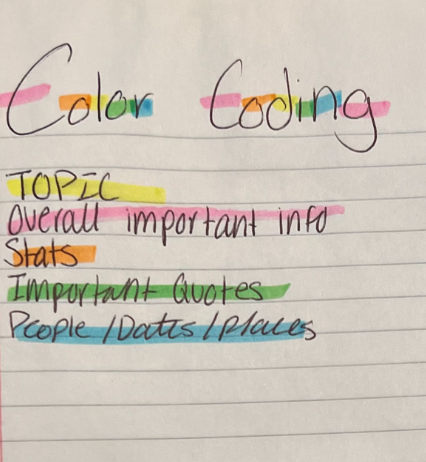 Color Coding
TOPIC
Overall important info
Stats
Important Quotes
People/Dates/Places